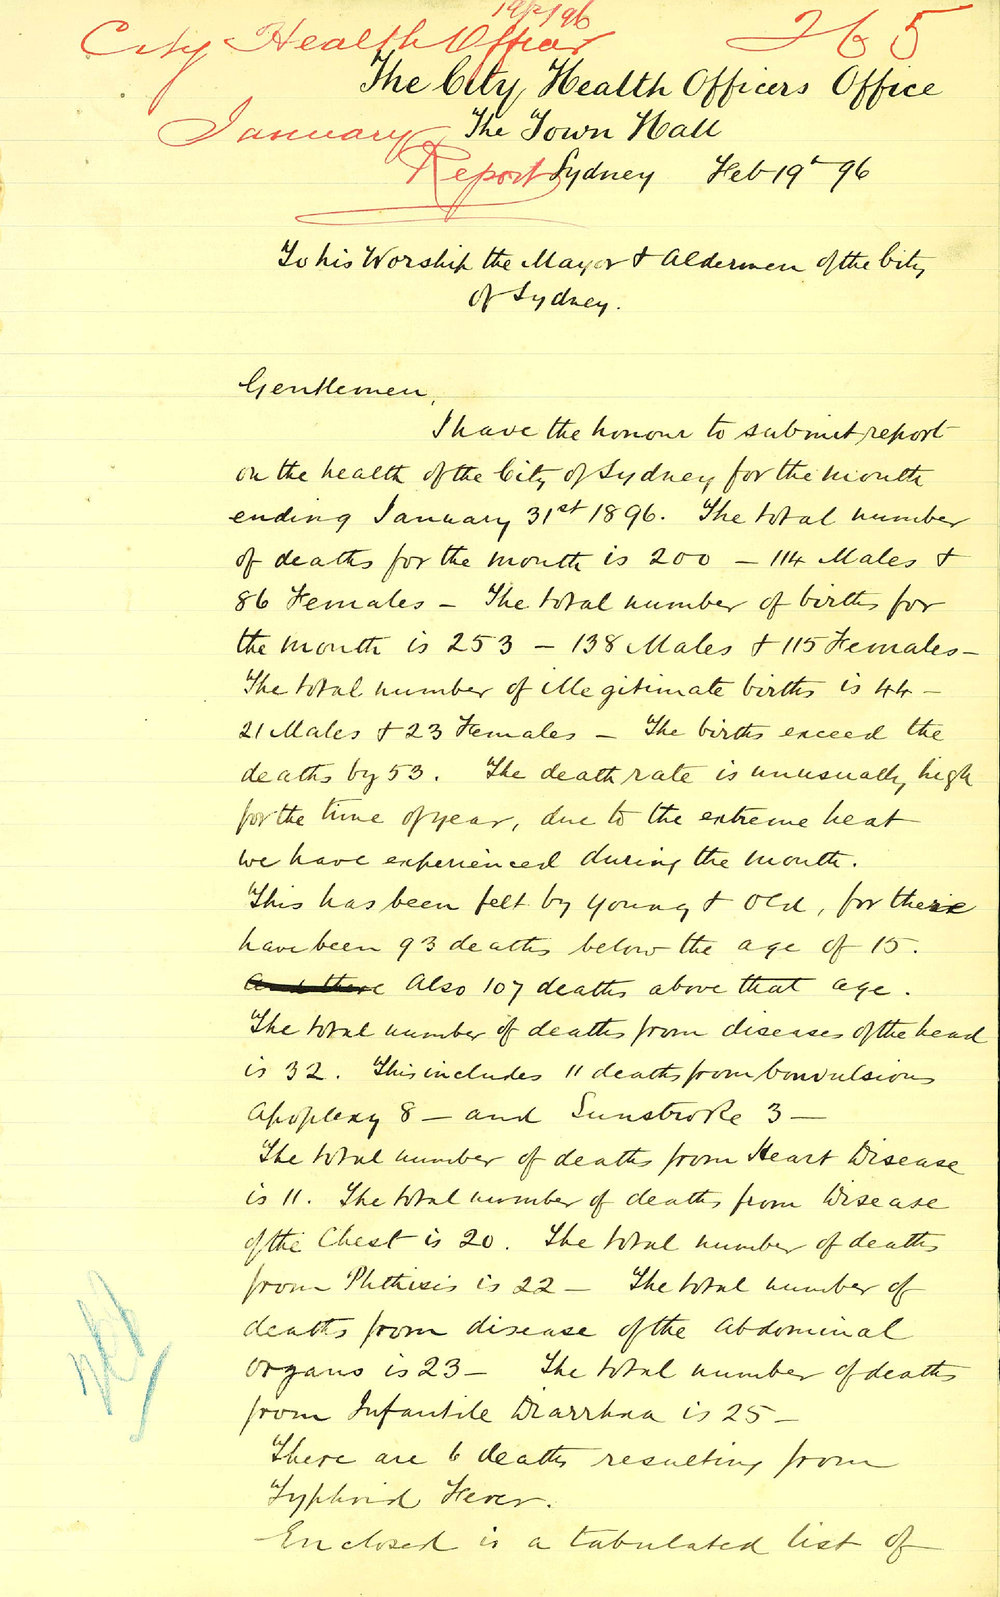 City Health Officer
265
The City Health Officers Office
January
The Town Hall
Report
Sydney Feb 19th 96
To his Worship the Mayor & Aldermen of the City
of Sydney.
Gentlemen,
I have the honour to submit report
on the health of the City of Sydney for the month
ending January 31st 1896. The total number
of deaths for the month is 200 - 114 Males &
86 Females - The total number of births for
the month is 253 - 138 Males & 115 Females -
The total number of illegitimate births is 44 -
21 Males & 23 Females - The births exceed the
deaths by 53. The death rate is unusually high
for the time of year, due to the extreme heat
we have experienced during the month.
This has been felt by young & old, for there
have been 93 deaths below the age of 15.
And there Also 107 deaths above that age.
The total number of deaths from diseases of the head
is 32. This includes 11 deaths from Convulsions
Apoplexy 8 - and Sunstroke 3 -
The total number of deaths from Heart Disease
is 11. The total number of deaths from Disease
of the Chest is 20. The total number of deaths
from Phthisis is 22 - The total number of
deaths from disease of the Abdominal
Organs is 23 - The total number of deaths
from Infantile Diarrhœa is 25 -
There are 6 deaths resulting from
Typhoid Fever.
Enclosed is a tabulated list of